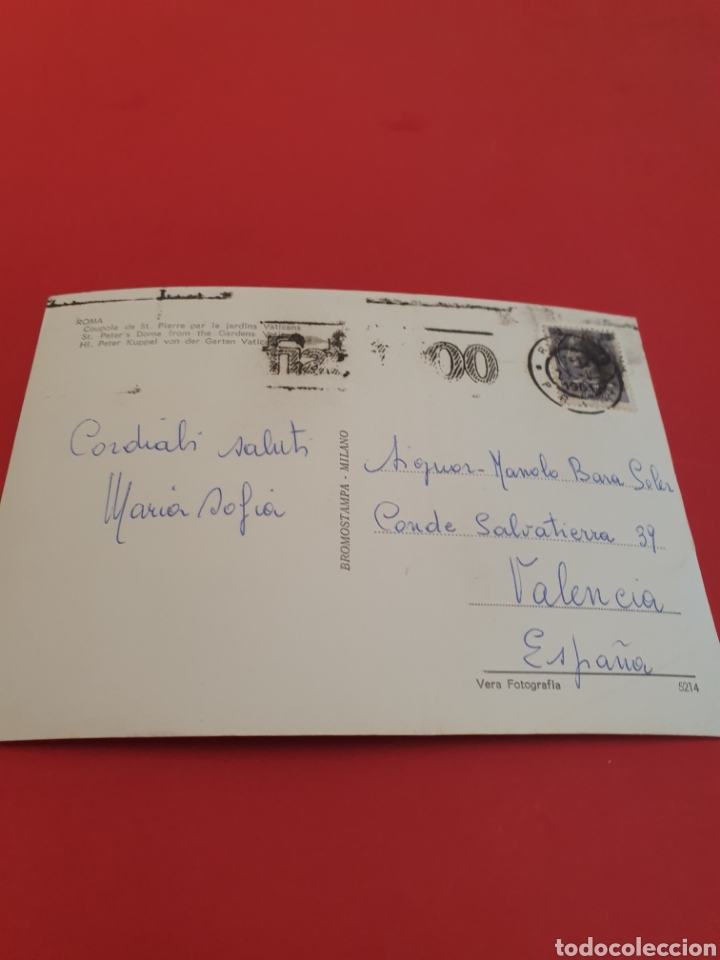 ROMA
Coupole de St. Pierre par le jardins Vaticans
St. Peter's Dome from the Gardens
Hl. Peter Kuppel von der Garten
fiat 00
Cordiali saluti
Maria Sofia
BROMOSTAMPA - MILANO
Signor Manolo Bara Soler
Conde Salvatierra 39
Valencia
España
Vera Fotografia 5214
todocoleccion